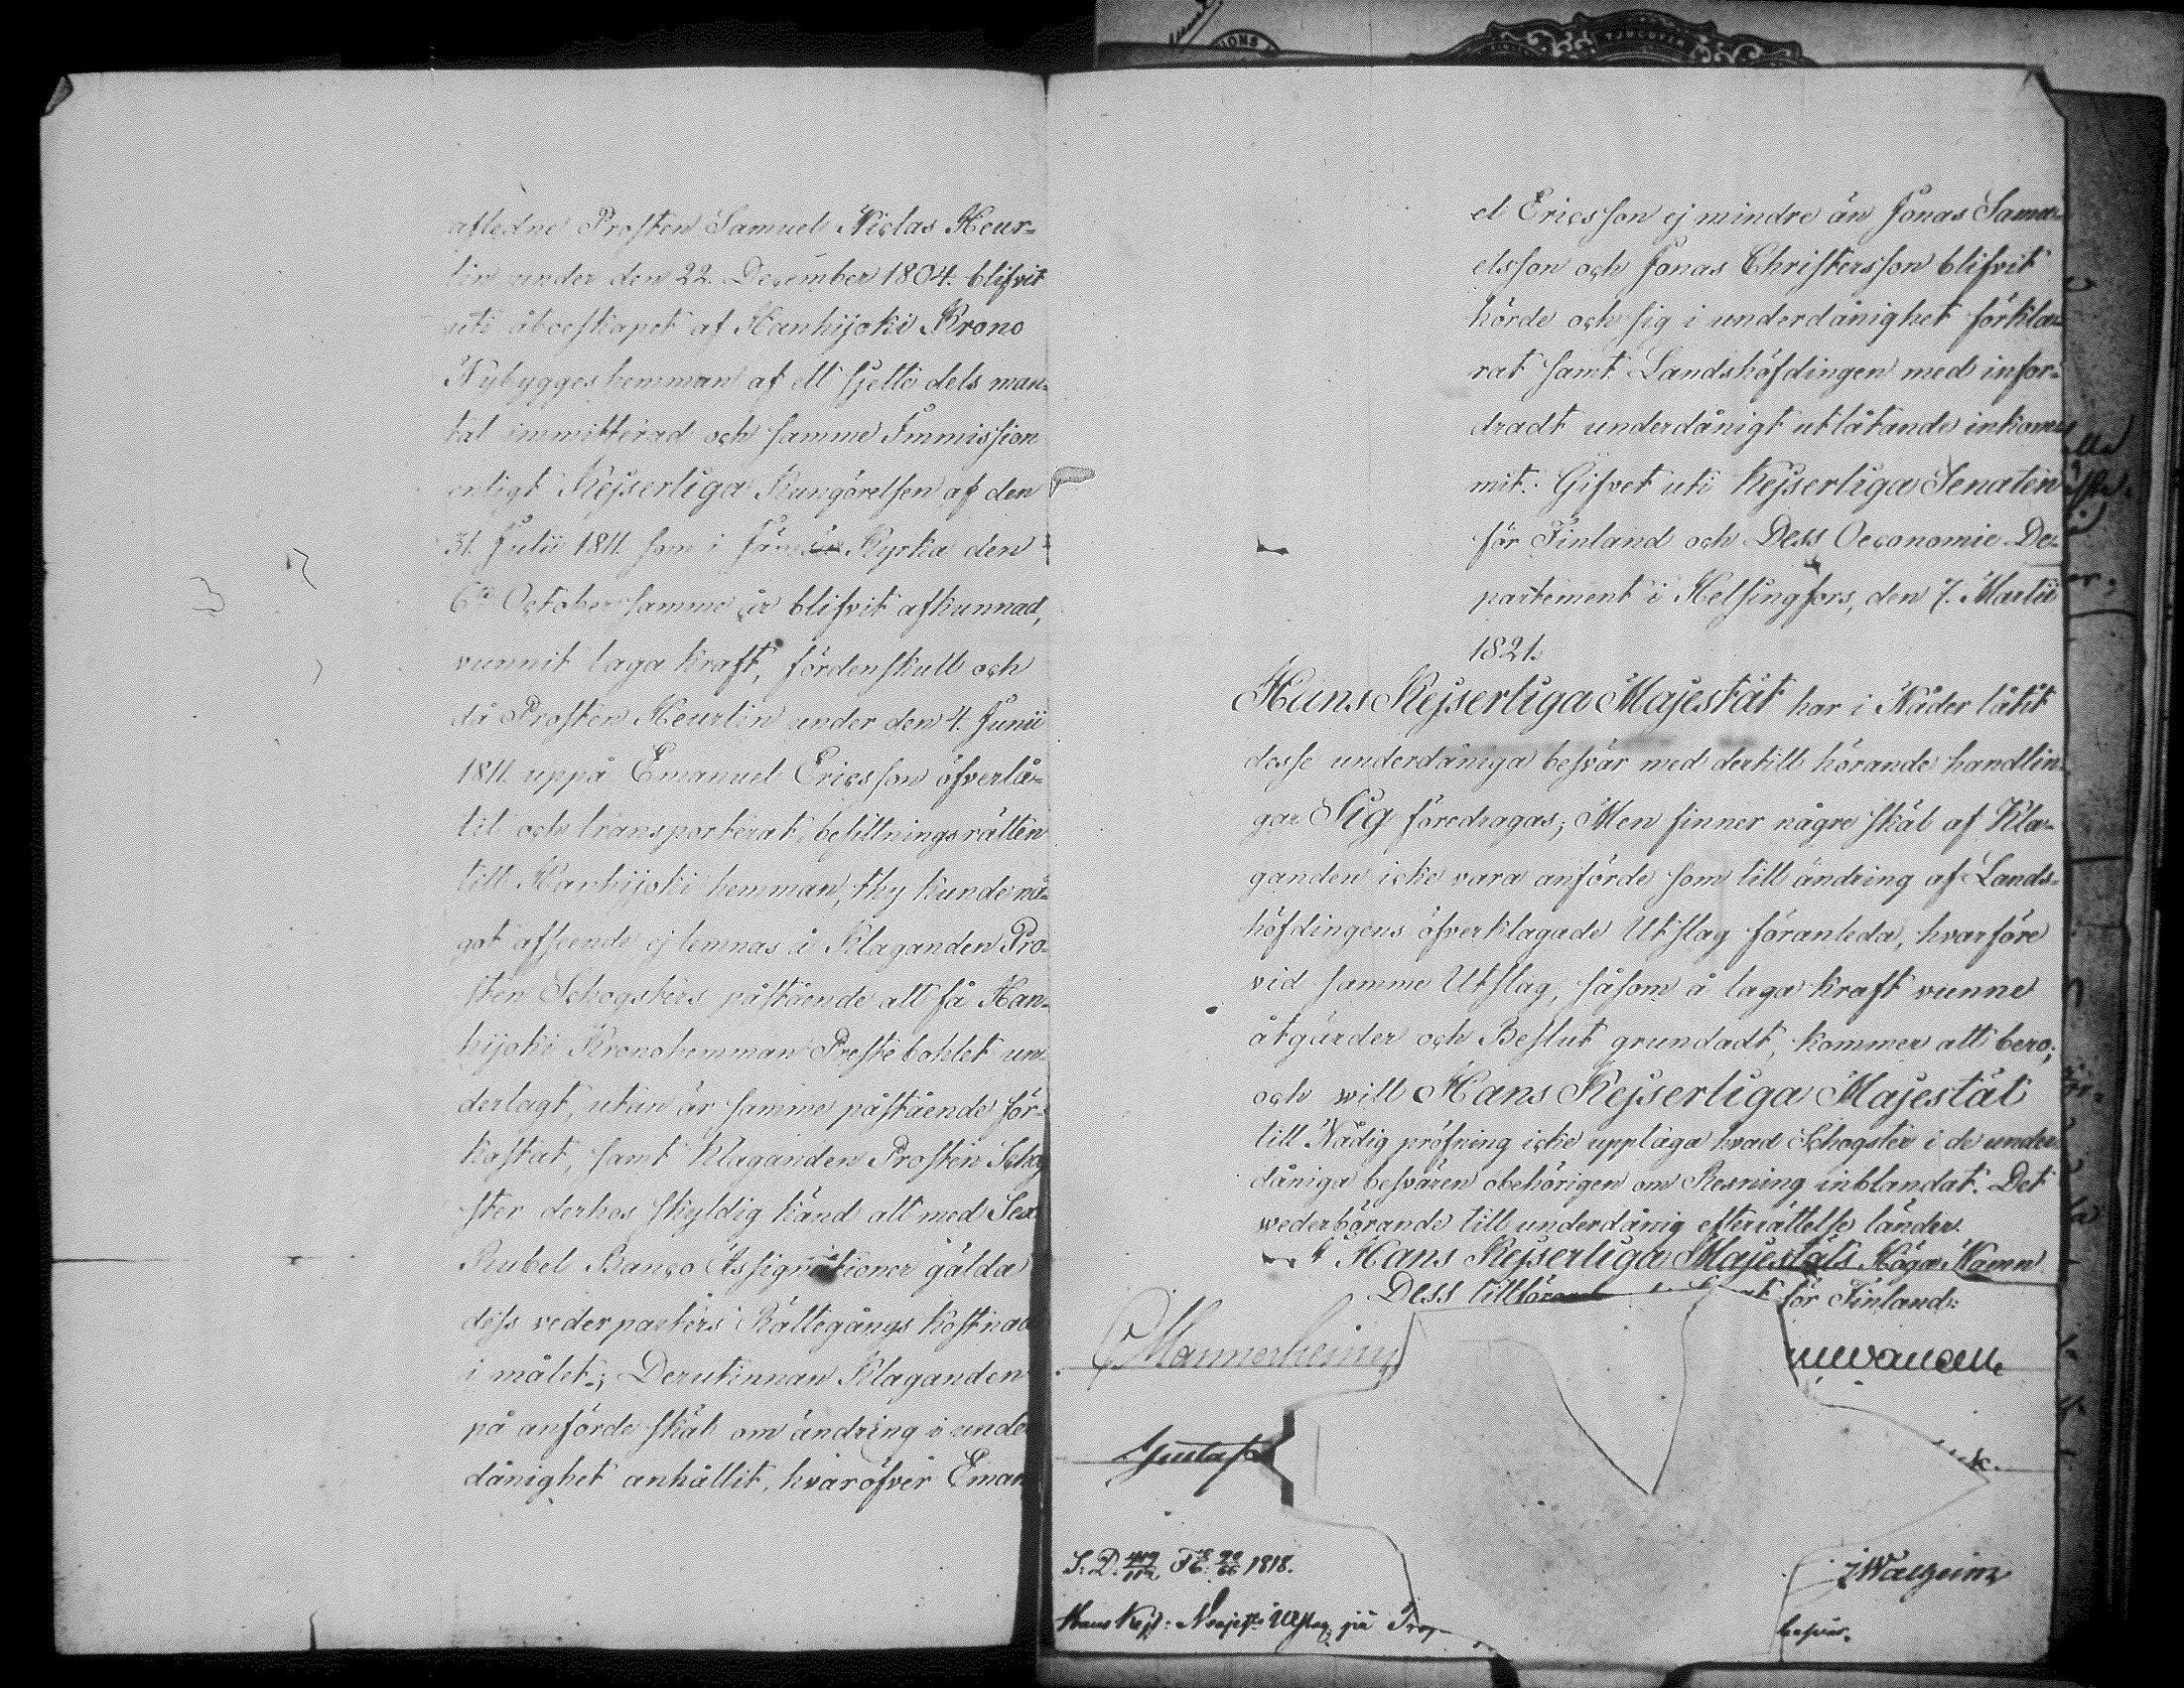 afledne Prosten Samuel Niclas Heur-
lin under den 22. December 1804. blifvit
uti åboeskapet af Hanhijoki Krono
Nybygges hemman af ett sjette dels man-
tal immitterad och samme Immission
enligt Kejserliga Kungörelsen af den
31. Julii 1811. som i Kyrka den
6te October samme år blifvit afkunnad,
vunnit laga kraft, fördenskull och
då Prosten Heurlin under den 4. Junii
1811. uppå Emanuel Ericsson öfverlå-
tit och transporterat besittningsrätten
till Hanhijoki hemman, thy kunde nå-
got afseende ej lemnas å Klaganden Pro-
sten Schogsters påstående att få Han-
hijoki Kronohemman Prestebohlet un-
derlagt, utan är samme påstående för-
kastat, samt Klaganden Prosten Schog
ster derhos skyldig känd att med Sex
Rubel Banco Assignationer gälda
dess vederparters Rättegångs kostnad
i målet; Derutinnan Klaganden
på anförde skäl om ändring i unde
dånighet anhållit, hvaröfver Eman
el Ericsson ej mindre än Jonas Samu-
elsson och Jonas Christersson blifvit
hörde och sig i underdånighet förkla-
rat samt Landshöfdingen med infor-
dradt underdånigt utlåtande inkom-
mit. Gifvet uti Kejserliga Senaten
för Finland och Dess Oeconomie De-
partement i Helsingfors, den 7. Martii
1821.
Hans Kejserliga Majestät har i Nåder låtit
desse underdåniga besvär med dertill hörande handlin-
gar Sig föredragas; Men finner någre skäl af Kla-
ganden icke vara anförde som till ändring af Lands-
höfdingens öfverklagade Utslag föranleda, hvarföre
vid samme Utslag, såsom å laga kraft vunne
åtgärder och Beslut grundadt, kommer att bero;
och will Hans Kejserliga Majestät
till Nådig pröfning icke upptaga hvad Schogster i de under
dåniga besvären obehörigen om Resning inblandat. Det
wederbörande till underdånig efterrättelse länder.
Hans Kejserliga Majestäts Höga Namn
Dess för Finland:
C Mannerheim
Gustaf
S. D. 1818.
Hans Kejs: Majestts Utslag på
besvär.